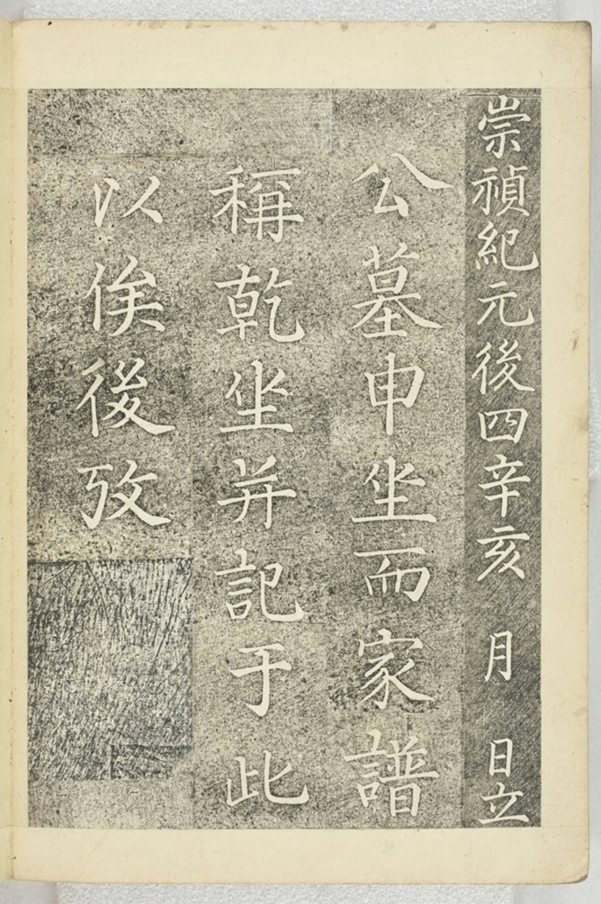 崇禎紀元後四辛亥 月 日立
公墓申坐而家譜
稱乾坐并記于此
以俟後攷